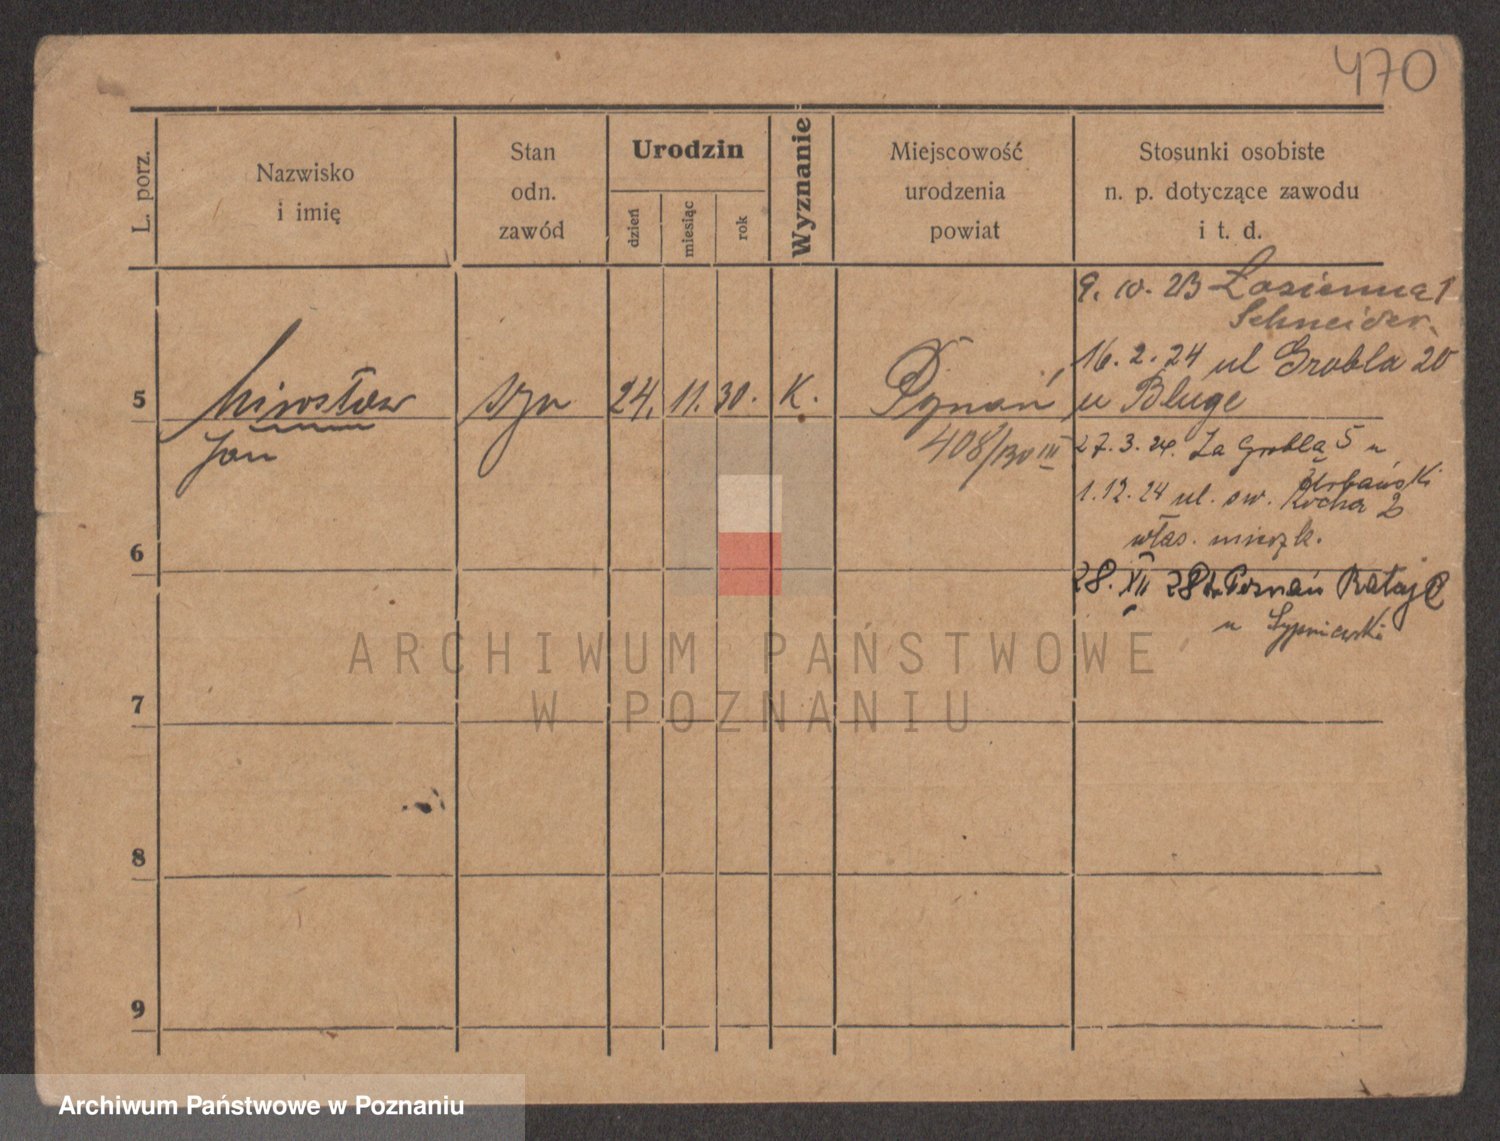 470
L. porz.
Nazwisko
i imię
Stan
odn.
zawód
Urodzin
dzień
miesiąc
rok
Wyznanie
Miejscowość
urodzenia
powiat
Stosunki osobiste
n. p. dotyczące zawodu
i t. d.
9. 10. 23 Łazienna 1
Schneider
16. 2. 24 ul Grobla 20
u Bluge
5
Mirosław
Jan
syn
24.
11.
30.
K.
Poznań
408/130 III
27. 3. 24. Za Groblą 5 u
Urbański
1.12.24 ul. św. Rocha 2
włas. mieszk.
6
28. XII 28 Poznań Rataje
u Sypniewski
7
8
9
ARCHIWUM PAŃSTWOWE
W POZNANIU
Archiwum Państwowe w Poznaniu